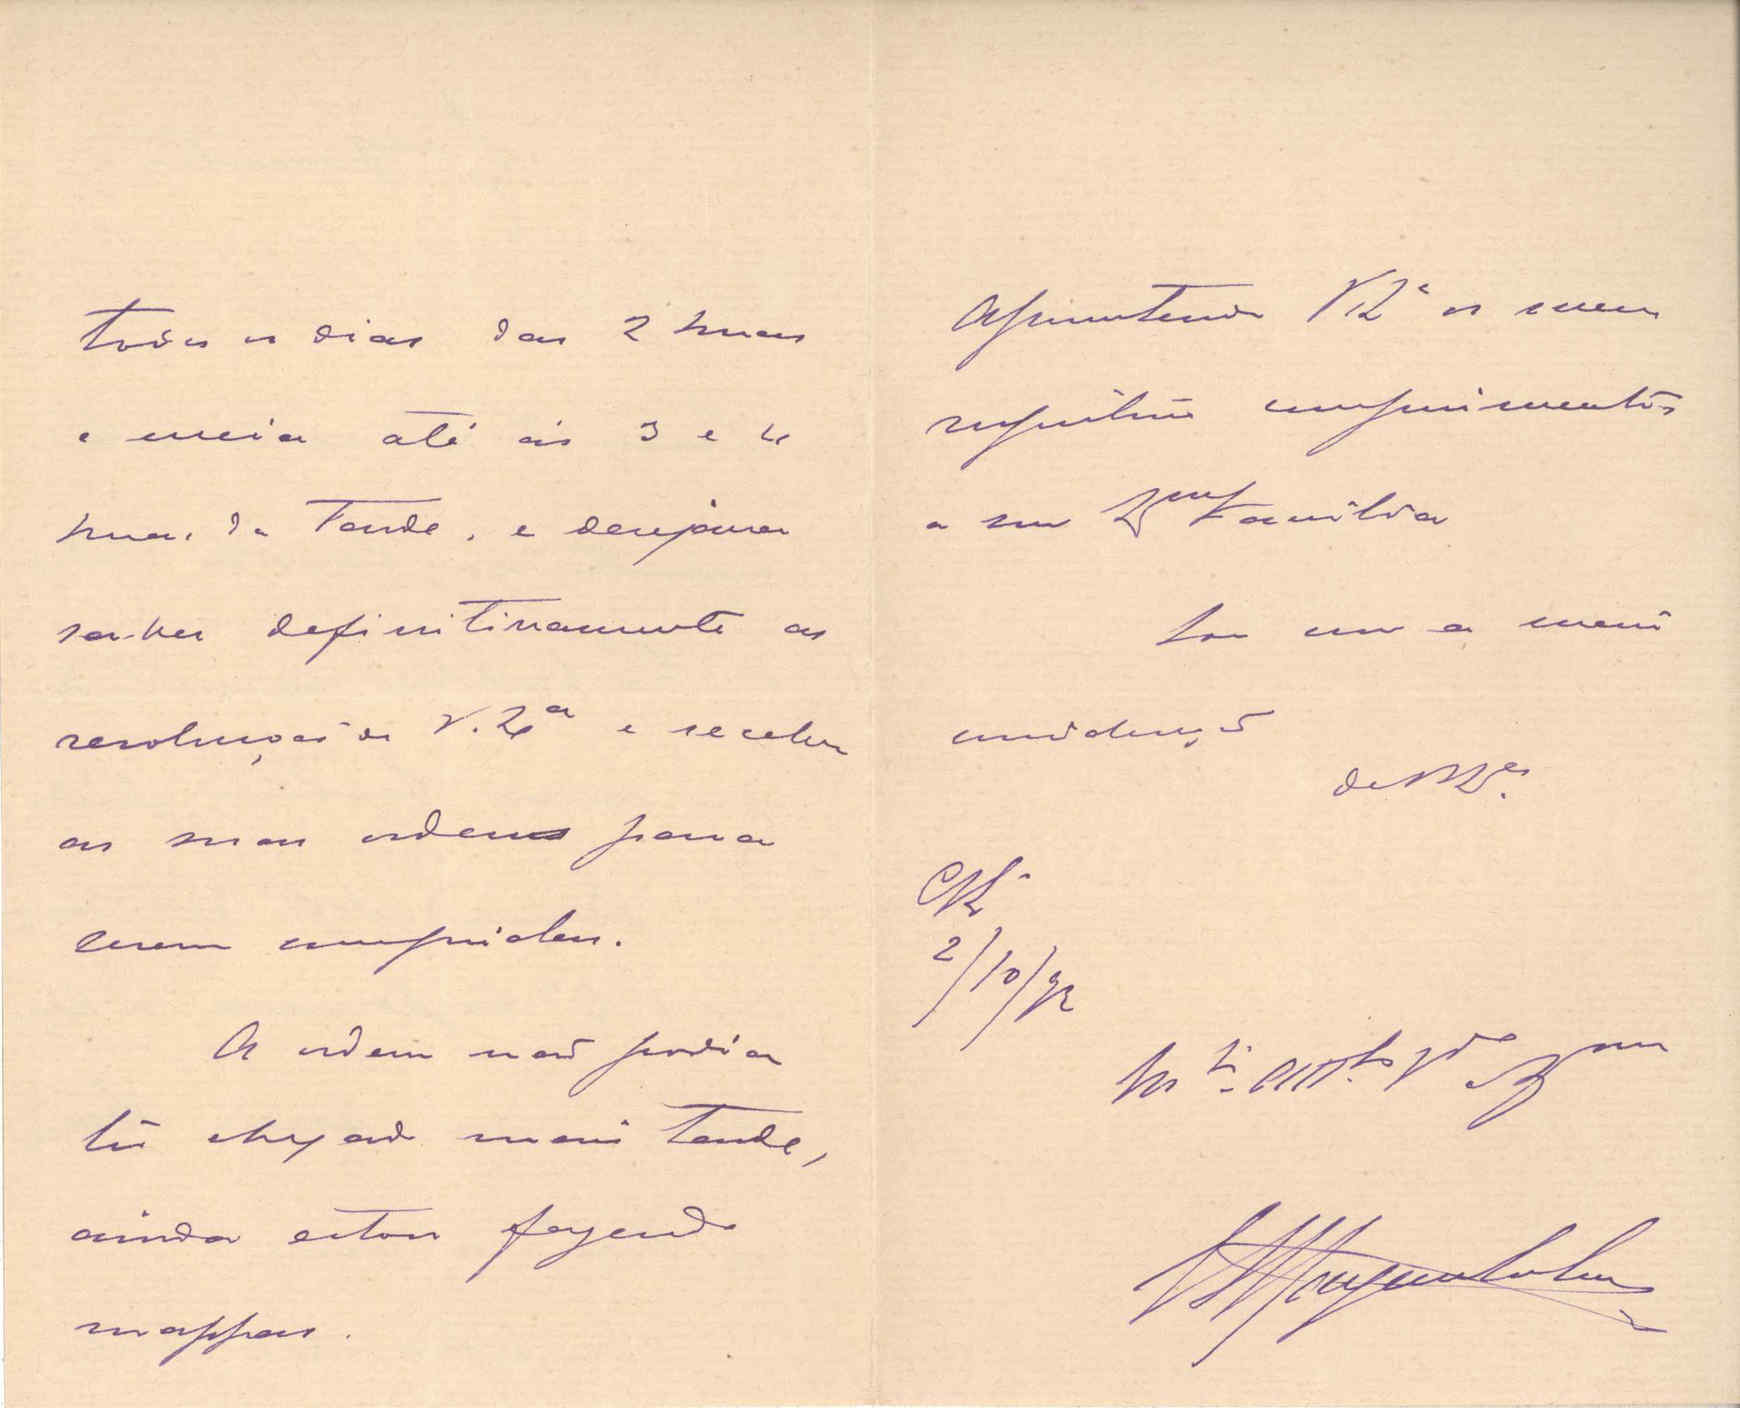 todos os dias das 2 horas
e meia até ás 3 e 4
horas da tarde, e desejava
saber definitivamente as
resoluções de V. Exª e receber
as suas ordens para
serem cumpridas.
A ordem não podia
ter chegado mais tarde,
ainda estou fazendo
mappas.
Apresentando V Exª os meus
respeitosos cumprimentos
a sua Exma Familia
Sou com a maior
consideração
de V Exª
2/10/92